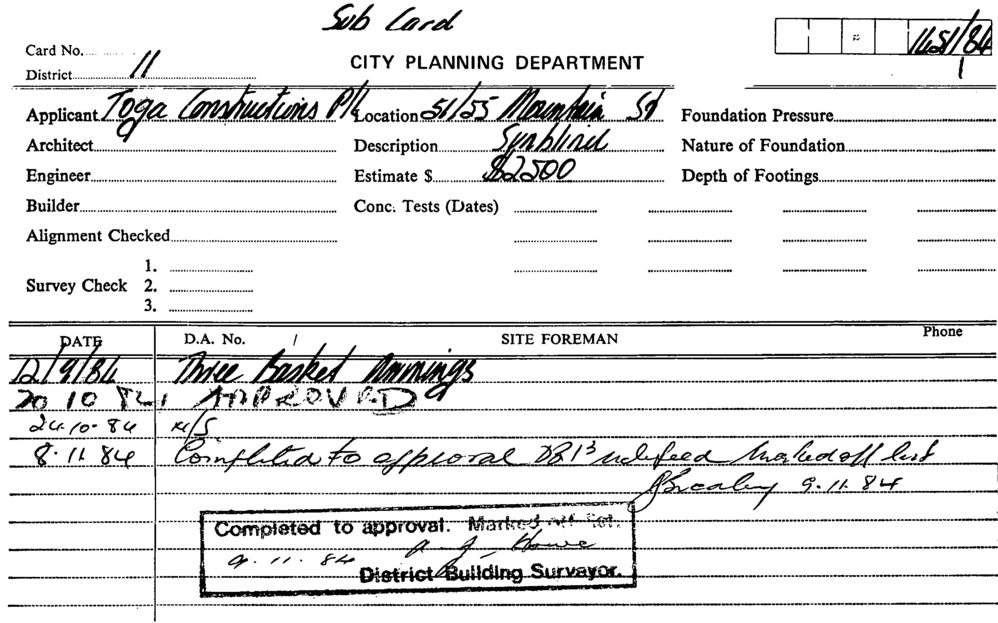 Sub Card
1451/84
Card No.
CITY PLANNING DEPARTMENT
District 11
1
Applicant Toga Constructions P/L Location 51/55 Mountain St Foundation Pressure
Architect Description Sunblind Nature of Foundation
Engineer Estimate $ $2500 Depth of Footings
Builder Conc. Tests (Dates)
Alignment Checked
1.
Survey Check 2.
3.
DATE D.A. No. / SITE FOREMAN Phone
12/9/84 Three Basket Awnings
20 10 84 APPROVED
24.10.84 N/S
8.11.84 Completed to approval marked off list
9.11.84
Completed to approval. Marked off list.
9.11.84 Howe
District Building Surveyor.